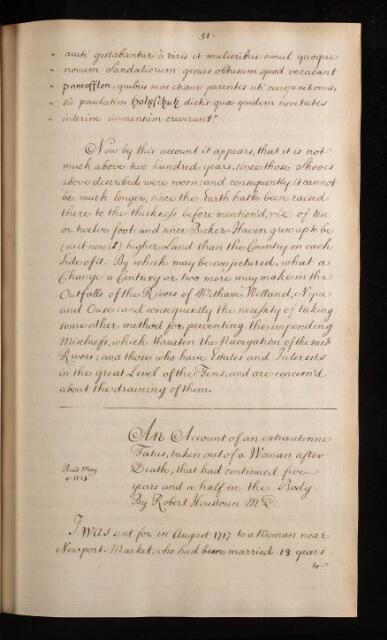 51.
acuti gestabantur à viris et mulieribus: simul quoque
novum Sandaliorum genus obtusum, quod vocabant
pantofflen, quibus mox etiam parentes uti
sis paulatim holzschuh dictis: quæ quidem novitates
interim immensum creverunt."
Now by this account it appears, that it is not
much above two hundred years, since those Shooes
above described were worn: and consequently it cannot
be much longer, since the Earth hath been raised
there to the thickness before mention'd, viz. of ten
or twelve foot: and since Bicker-Haven grew up to be
(as it now is) higher Land than the Country on each
Side of it. By which may be conjectured, what a
Change a Century or two more may make in the
Outfalls of the Rivers of Witham, Welland, Nine
and Ouse: and consequently the necessity of taking
some other method for preventing the impending
Mischiefs, which threaten the Navigation of the said
Rivers; and those who have Estates and Interests
in the great Level of the Fens, and are concern'd
about the draining of them.
An Account of an extrauterine
Fœtus, taken out of a Woman after
Read May
Death, that had continued five
9. 1723
years and a half in the Body.
By Robert Houstoun M:D.
I was sent for in August 1717 to a Woman near
Newport-Market, who had been married 18 years
to